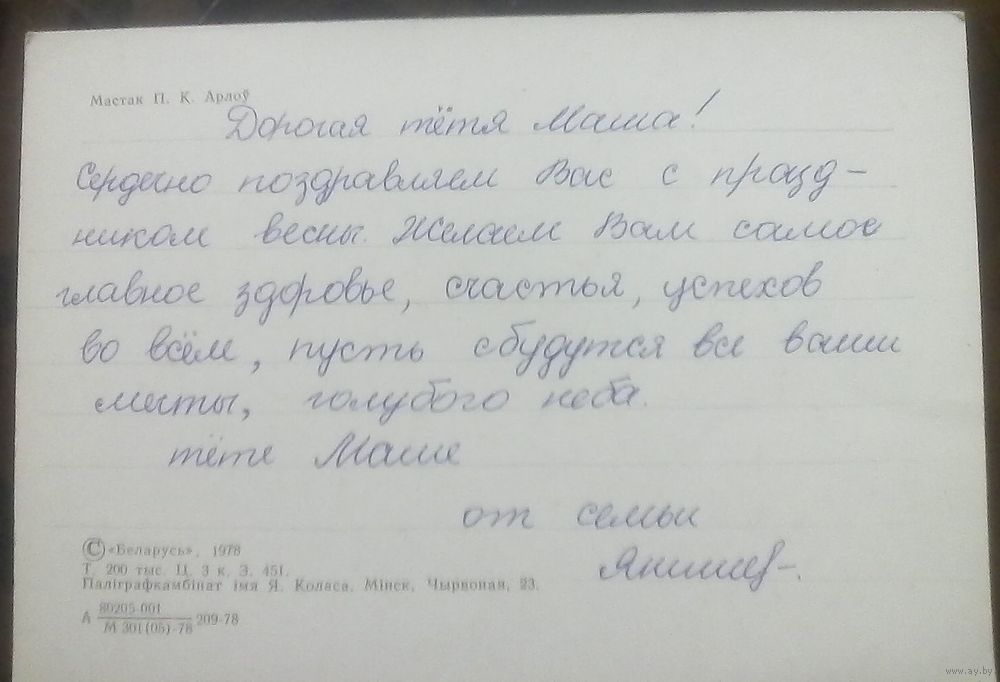 Мастак П. К. Арлоў
Дорогая тётя Маша!
Сердечно поздравляем Вас с празд-
ником весны. Желаем Вам самое
главное здоровье, счастья, успехов
во всём, пусть сбудутся все ваши
мечты, голубого неба.
тёте Маше
от семьи
© «Беларусь», 1978
Т. 200 тыс. Ц. 3 к. З. 451.
Паліграфкамбінат імя Я. Коласа. Мінск, Чырвоная, 23.
А 80205-001 209-78
М 301(05)-78
www.ay.by